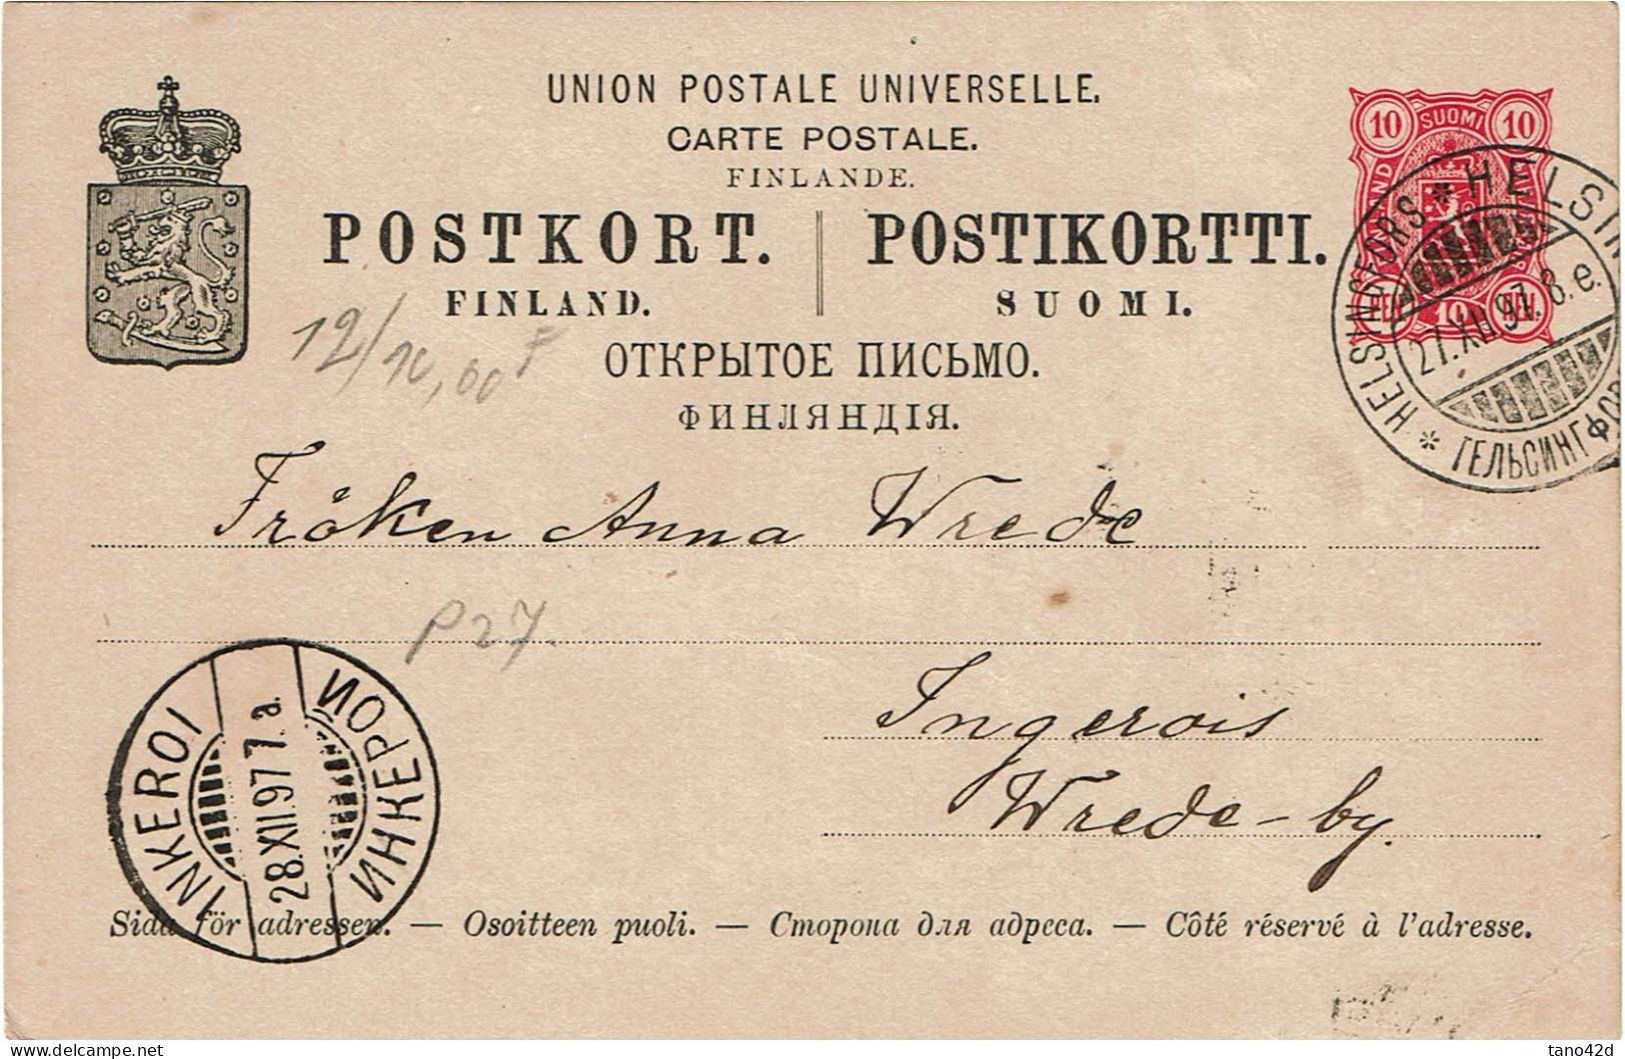 UNION POSTALE UNIVERSELLE.
CARTE POSTALE.
FINLANDE.
POSTKORT. POSTIKORTTI.
FINLAND. SUOMI.
ОТКРЫТОЕ ПИСЬМО.
ФИНЛЯНДІЯ.
10 SUOMI 10
10
HELSINGFORS * HELSIN
27.XII.97. 8.e.
* ГЕЛЬСИНГФОР
12/10,00 F
Fröken Anna Wrede
P27.
Ingerois
Wrede-by.
INKEROI
28.XII.97 7.a.
ИНКЕРОИ
Sida för adressen. — Osoitteen puoli. — Сторона для адреса. — Côté réservé à l'adresse.
tano42d